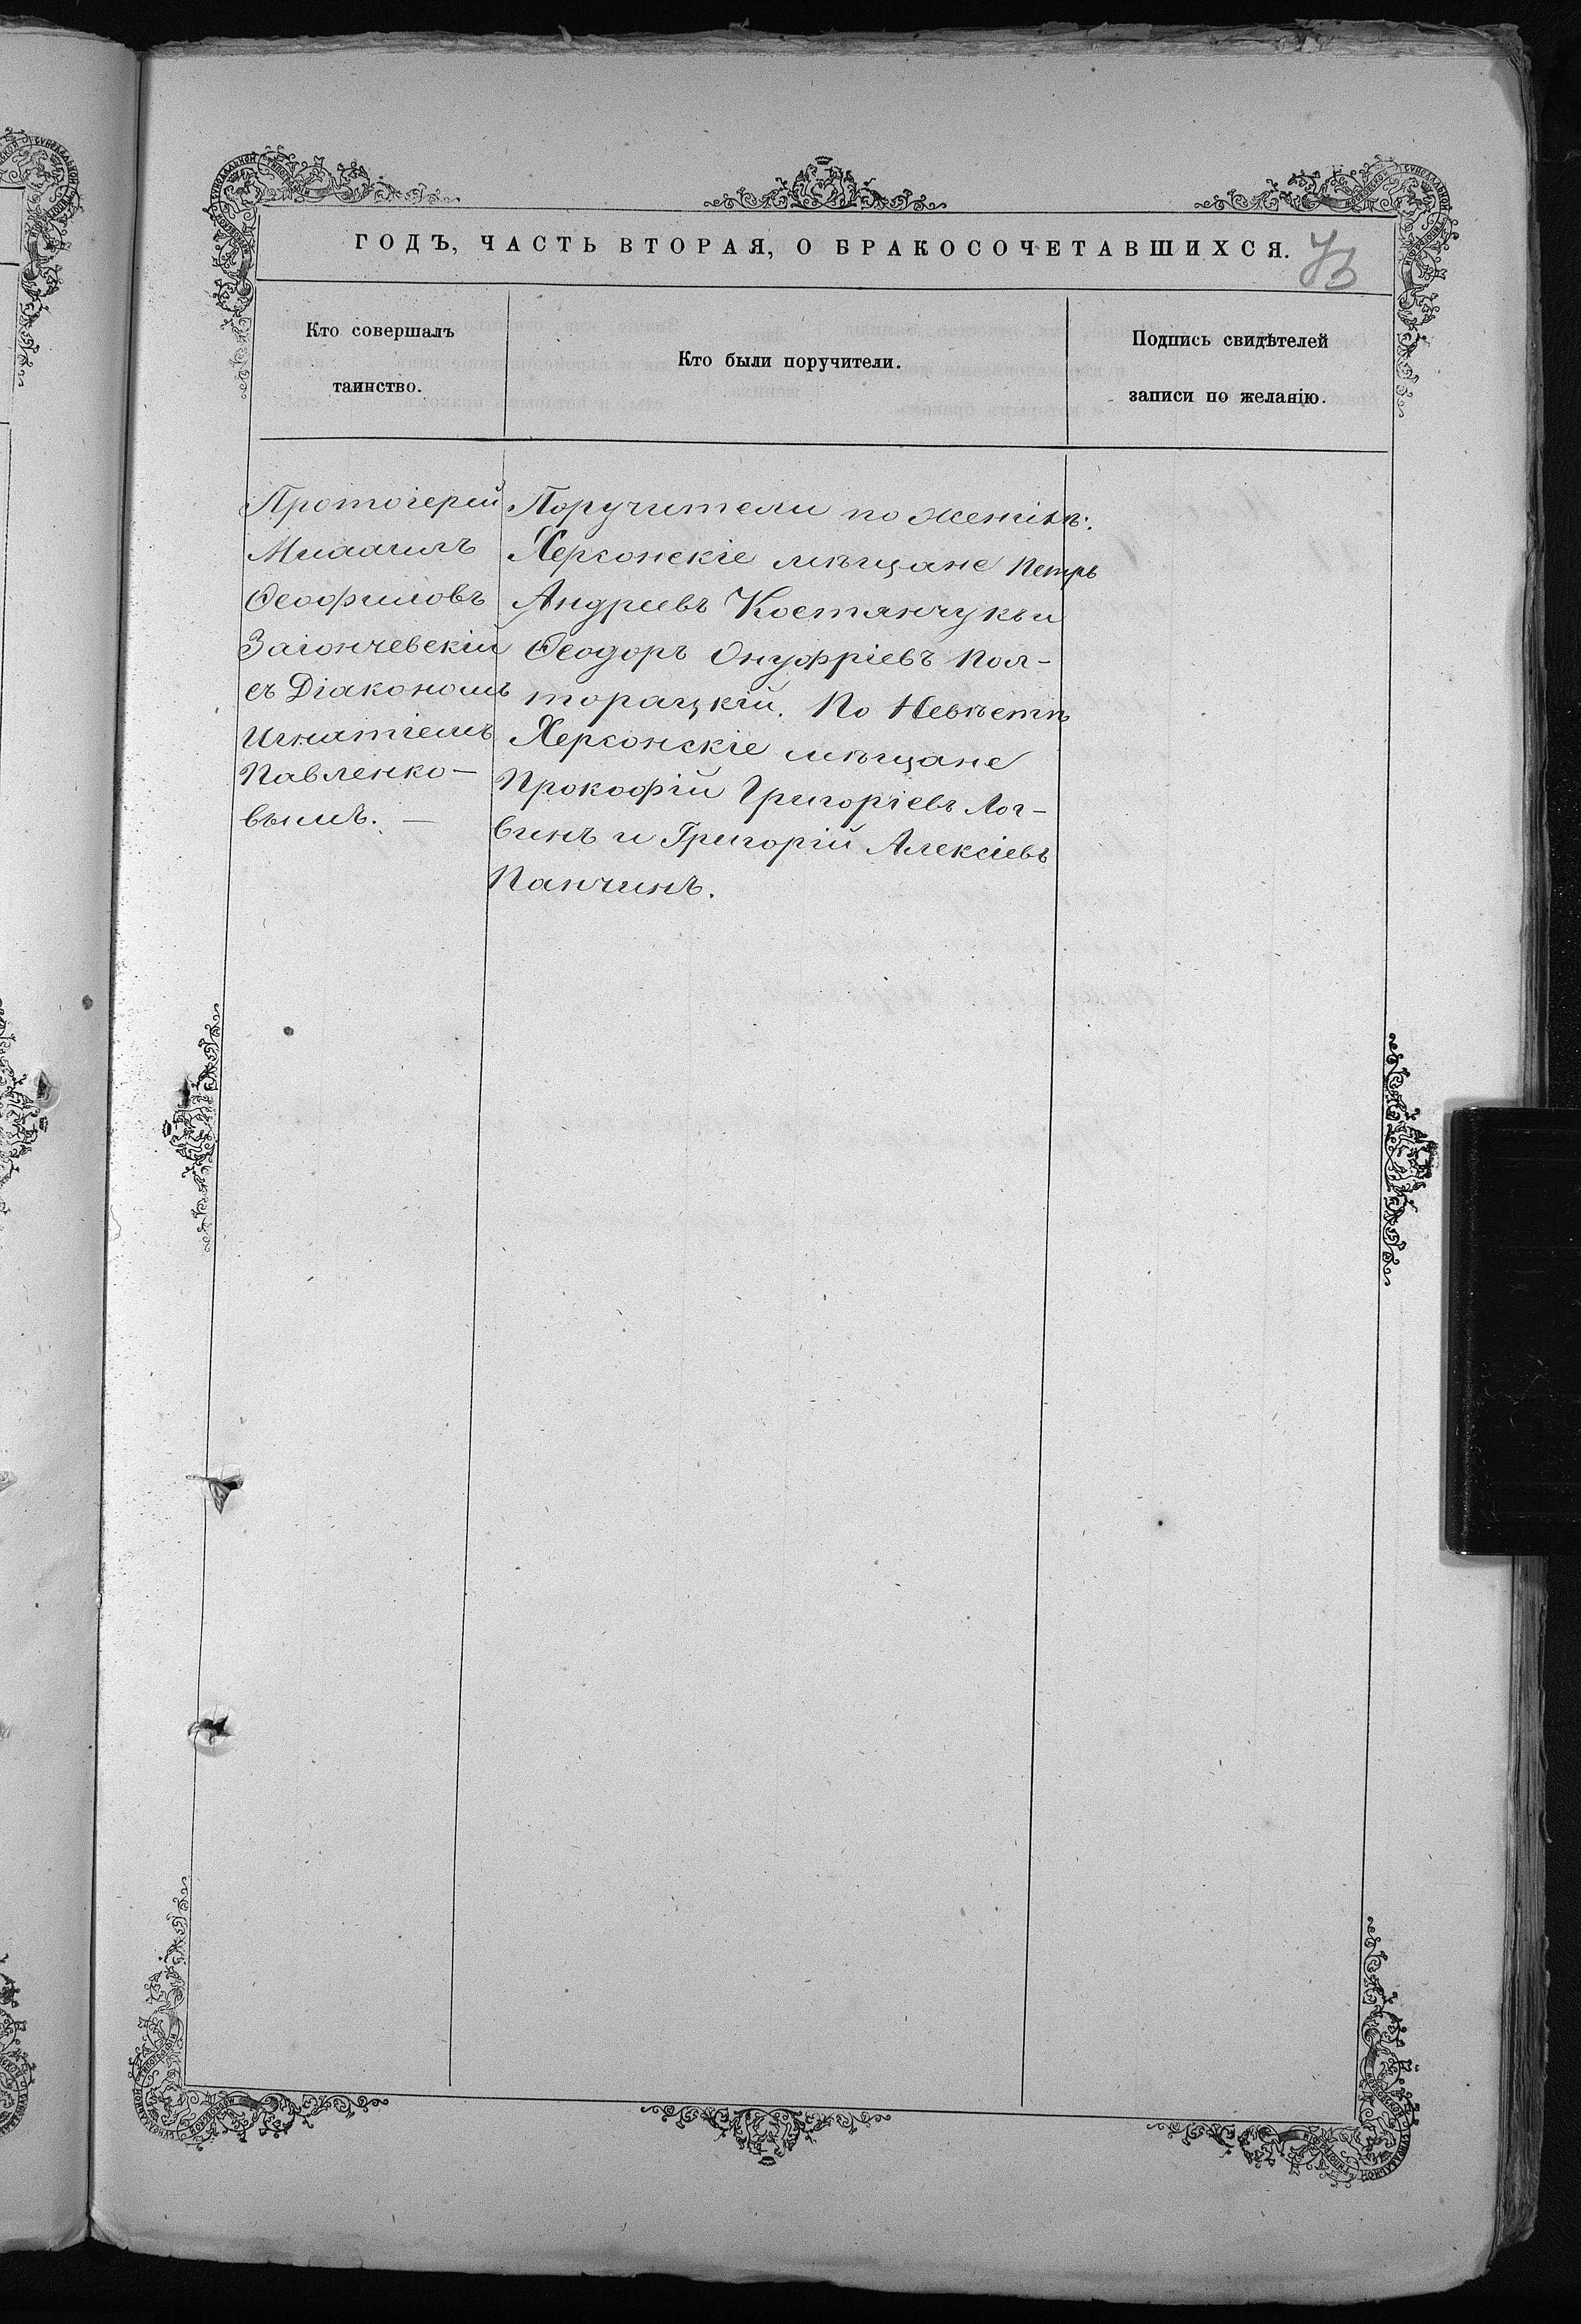 ГОДЪ, ЧАСТЬ ВТОРАЯ, О БРАКОСОЧЕТАВШИХСЯ.
Кто совершалъ
таинство.
Кто были поручители.
Подпись свидѣтелей
записи по желанію.
Протоіерей
Михаилъ
Ѳеофиловъ
Заіончевскій
съ Діакономъ
Игнатіемъ
Павленко-
вымъ. —
Поручители по женихѣ:
Херсонскіе мѣщане Петръ
Андреевъ Костянчукъ и
Ѳеодоръ Онуфріевъ Пол-
торацкій. По Невѣстѣ
Херсонскіе мѣщане
Прокофій Григоріевъ Лог-
винъ и Григорій Алексіевъ
Панчинъ.